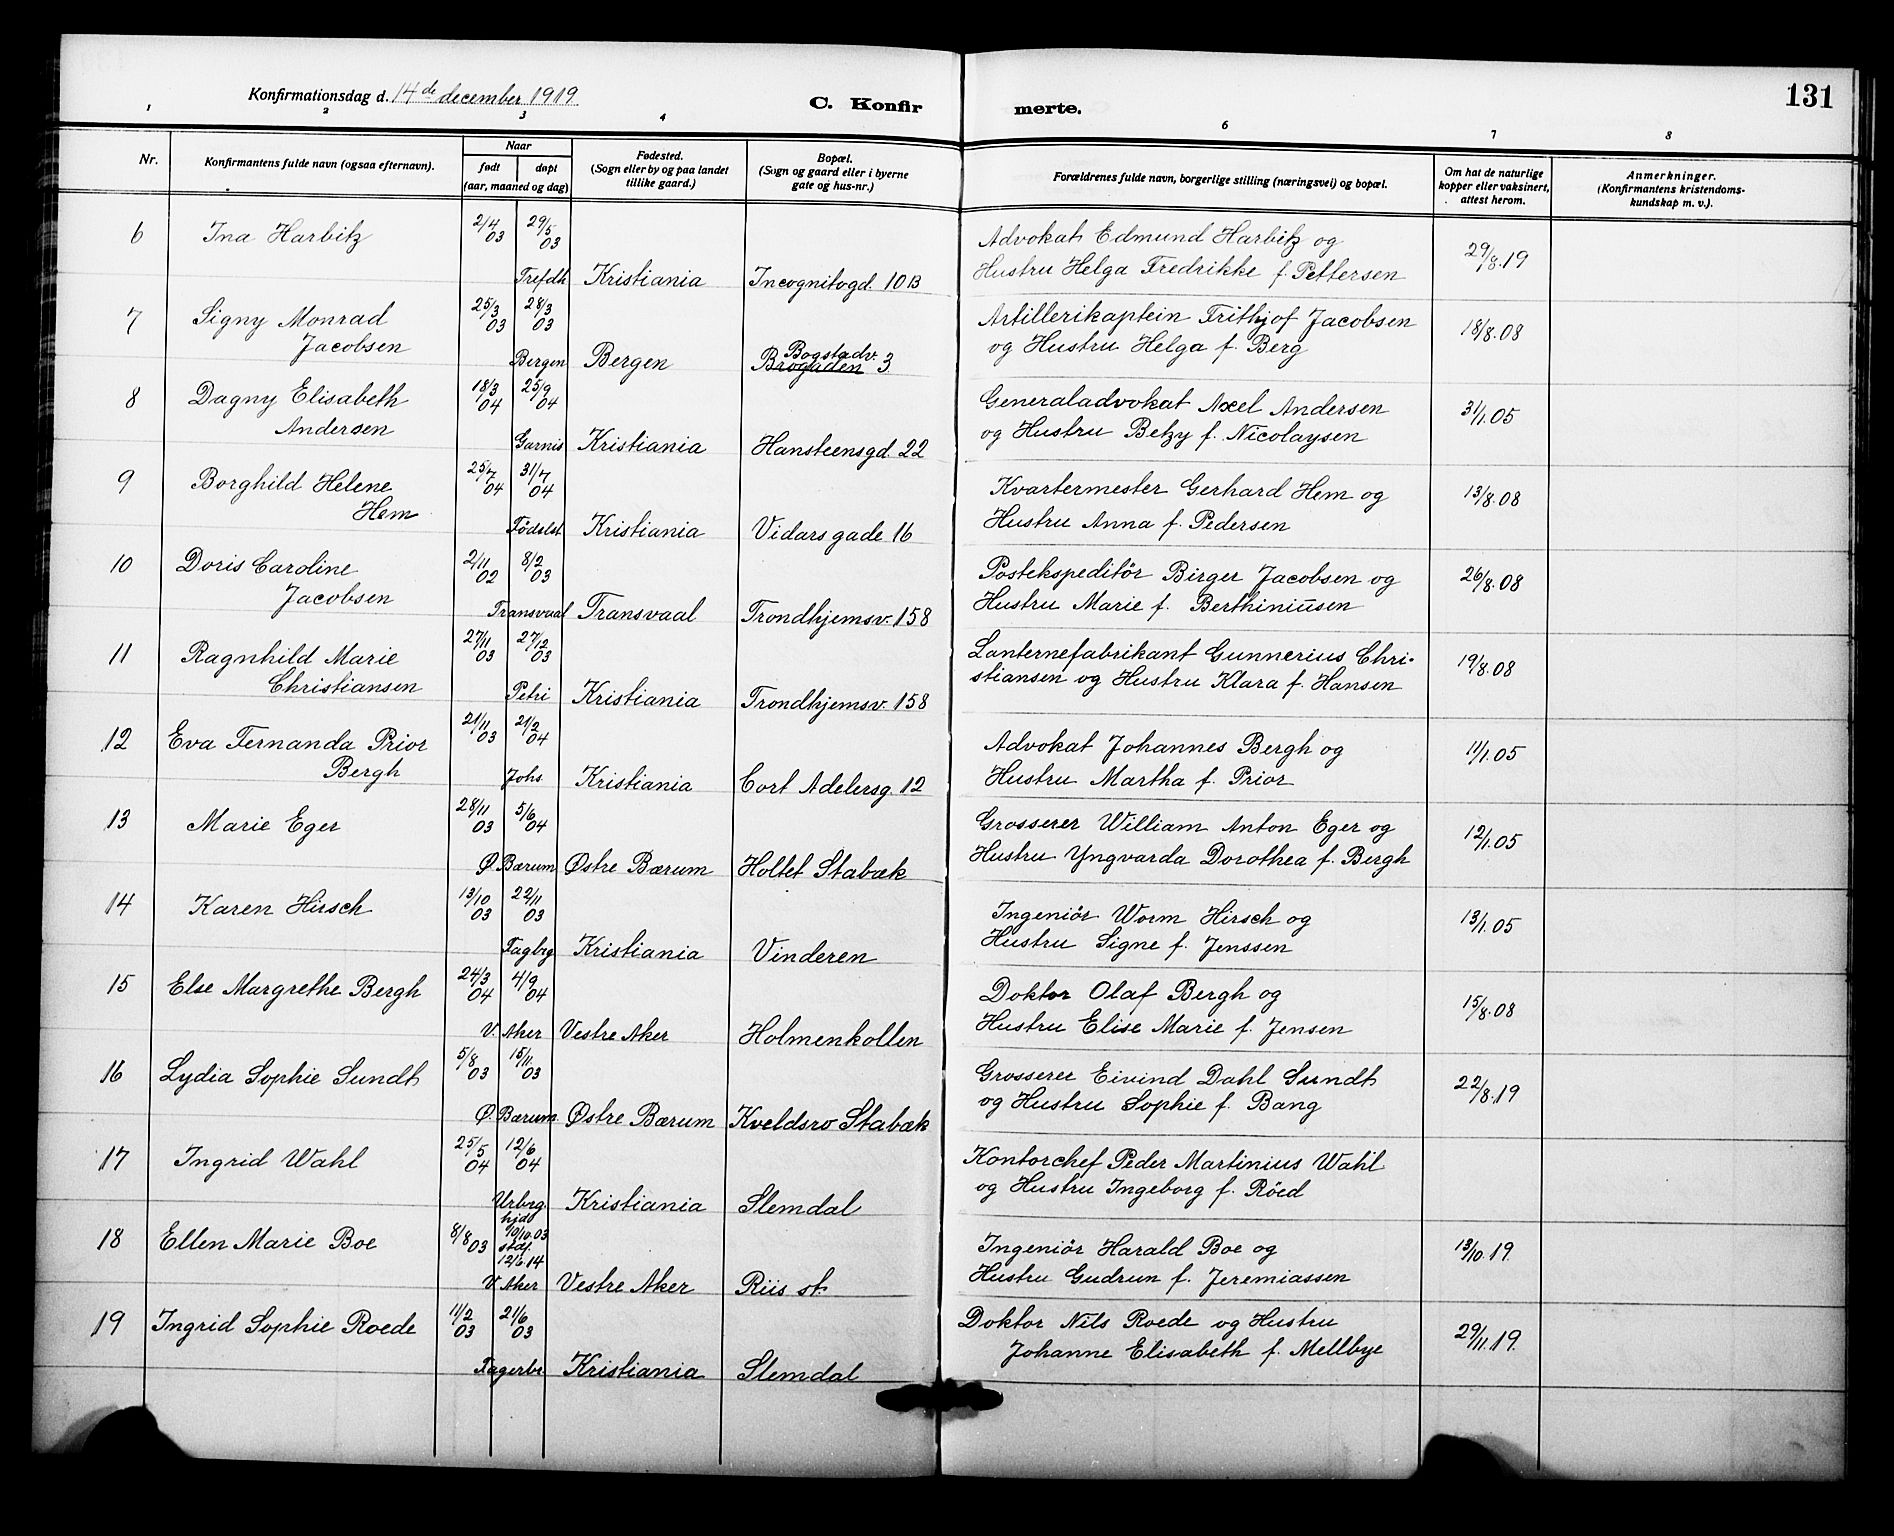 Konfirmationsdag d. 14de december 1919
C. Konfirmerte.
131
1 2 3 4 6 7 8
Nr.
Konfirmantens fulde navn (ogsaa efternavn).
Naar
født døpt
(aar, maaned og dag)
Fødested.
(Sogn eller by og paa landet
tillike gaard.)
Bopæl.
(Sogn og gaard eller i byerne
gate og hus-nr.)
Forældrenes fulde navn, borgerlige stilling (næringsvei) og bopæl.
Om hat de naturlige
kopper eller vaksinert,
attest herom.
Anmerkninger.
(Konfirmantens kristendoms-
kundskap m. v.).
6 Ina Harbitz 2/4 03 29/5 03 Advokat Edmund Harbitz og 29/8.19
Trefdh Kristiania Incognitogd. 10B Hustru Helga Fredrikke f. Pettersen
7 Signy Monrad 25/3 03 28/3 03 Artillerikaptein Frithjof Jacobsen 18/8.08
Jacobsen Bogstadv. og Hustru Helga f. Berg
Bergen Bergen Brogaden 3
8 Dagny Elisabeth 18/3 04 25/9 04 Generaladvokat Axel Andersen 31/1.05
Andersen Garnis Kristiania Hansteensgd. 22 og Hustru Betzy f. Nicolaysen
9 Borghild Helene 25/7 04 31/7 04 Kvartermester Gerhard Hem og 13/8.08
Hem Fødselst Kristiania Vidarsgade 16 Hustru Anna f. Pedersen
10 Doris Caroline 2/11 02 8/2 03 Postekspeditör Birger Jacobsen og 26/8.08
Jacobsen Transvaal Transvaal Trondhjemsv. 158 Hustru Marie f. Berthiniusen
11 Ragnhild Marie 27/11 03 27/12 03 Lanternefabrikant Gunnerius Chri- 19/8.08
Christiansen Petri Kristiania Trondhjemsv. 158 stiansen og Hustru Klara f. Hansen
12 Eva Fernanda Prior 21/11 03 21/2 04 Advokat Johannes Bergh og 11/1.05
Bergh Johs. Kristiania Cort Adelersg. 12 Hustru Martha f. Prior
13 Marie Eger 28/11 03 5/6 04 Grosserer William Anton Eger og 12/1.05
Ø. Bærum Østre Bærum Holtet Stabæk Hustru Yngvarda Dorothea f. Bergh
14 Karen Hirsch 13/10 03 22/11 03 Ingeniör Worm Hirsch og 13/1.05
Fagbrg Kristiania Vinderen Hustru Signe f. Jenssen
15 Else Margrethe Bergh 24/3 04 4/9 04 Doktor Olaf Bergh og 15/8.08
V. Aker Vestre Aker Holmenkollen Hustru Elise Marie f. Jensen
16 Lydia Sophie Sundt 5/8 03 15/11 03 Grosserer Eivind Dahl Sundt 22/8.19
Ø. Bærum Østre Bærum Kveldsro Stabæk og Hustru Sophie f. Bang
17 Ingrid Wahl 25/5 04 12/6 04 Kontorchef Peder Martinius Wahl
Urbrg. Kristiania Slemdal og Hustru Ingeborg f. Röed
18 Ellen Marie Boe 8/8 03 hjdt 9/10.03 Ingeniör Harald Boe og 13/10.19.
stdf. 12/6.14
V. Aker Vestre Aker Riis st. Hustru Gudrun f. Jeremiassen
19 Ingrid Sophie Roede 11/2 03 21/6 03 Doktor Nils Roede og Hustru 29/11.19.
Fagerbr Kristiania Slemdal Johanne Elisabeth f. Mellbye